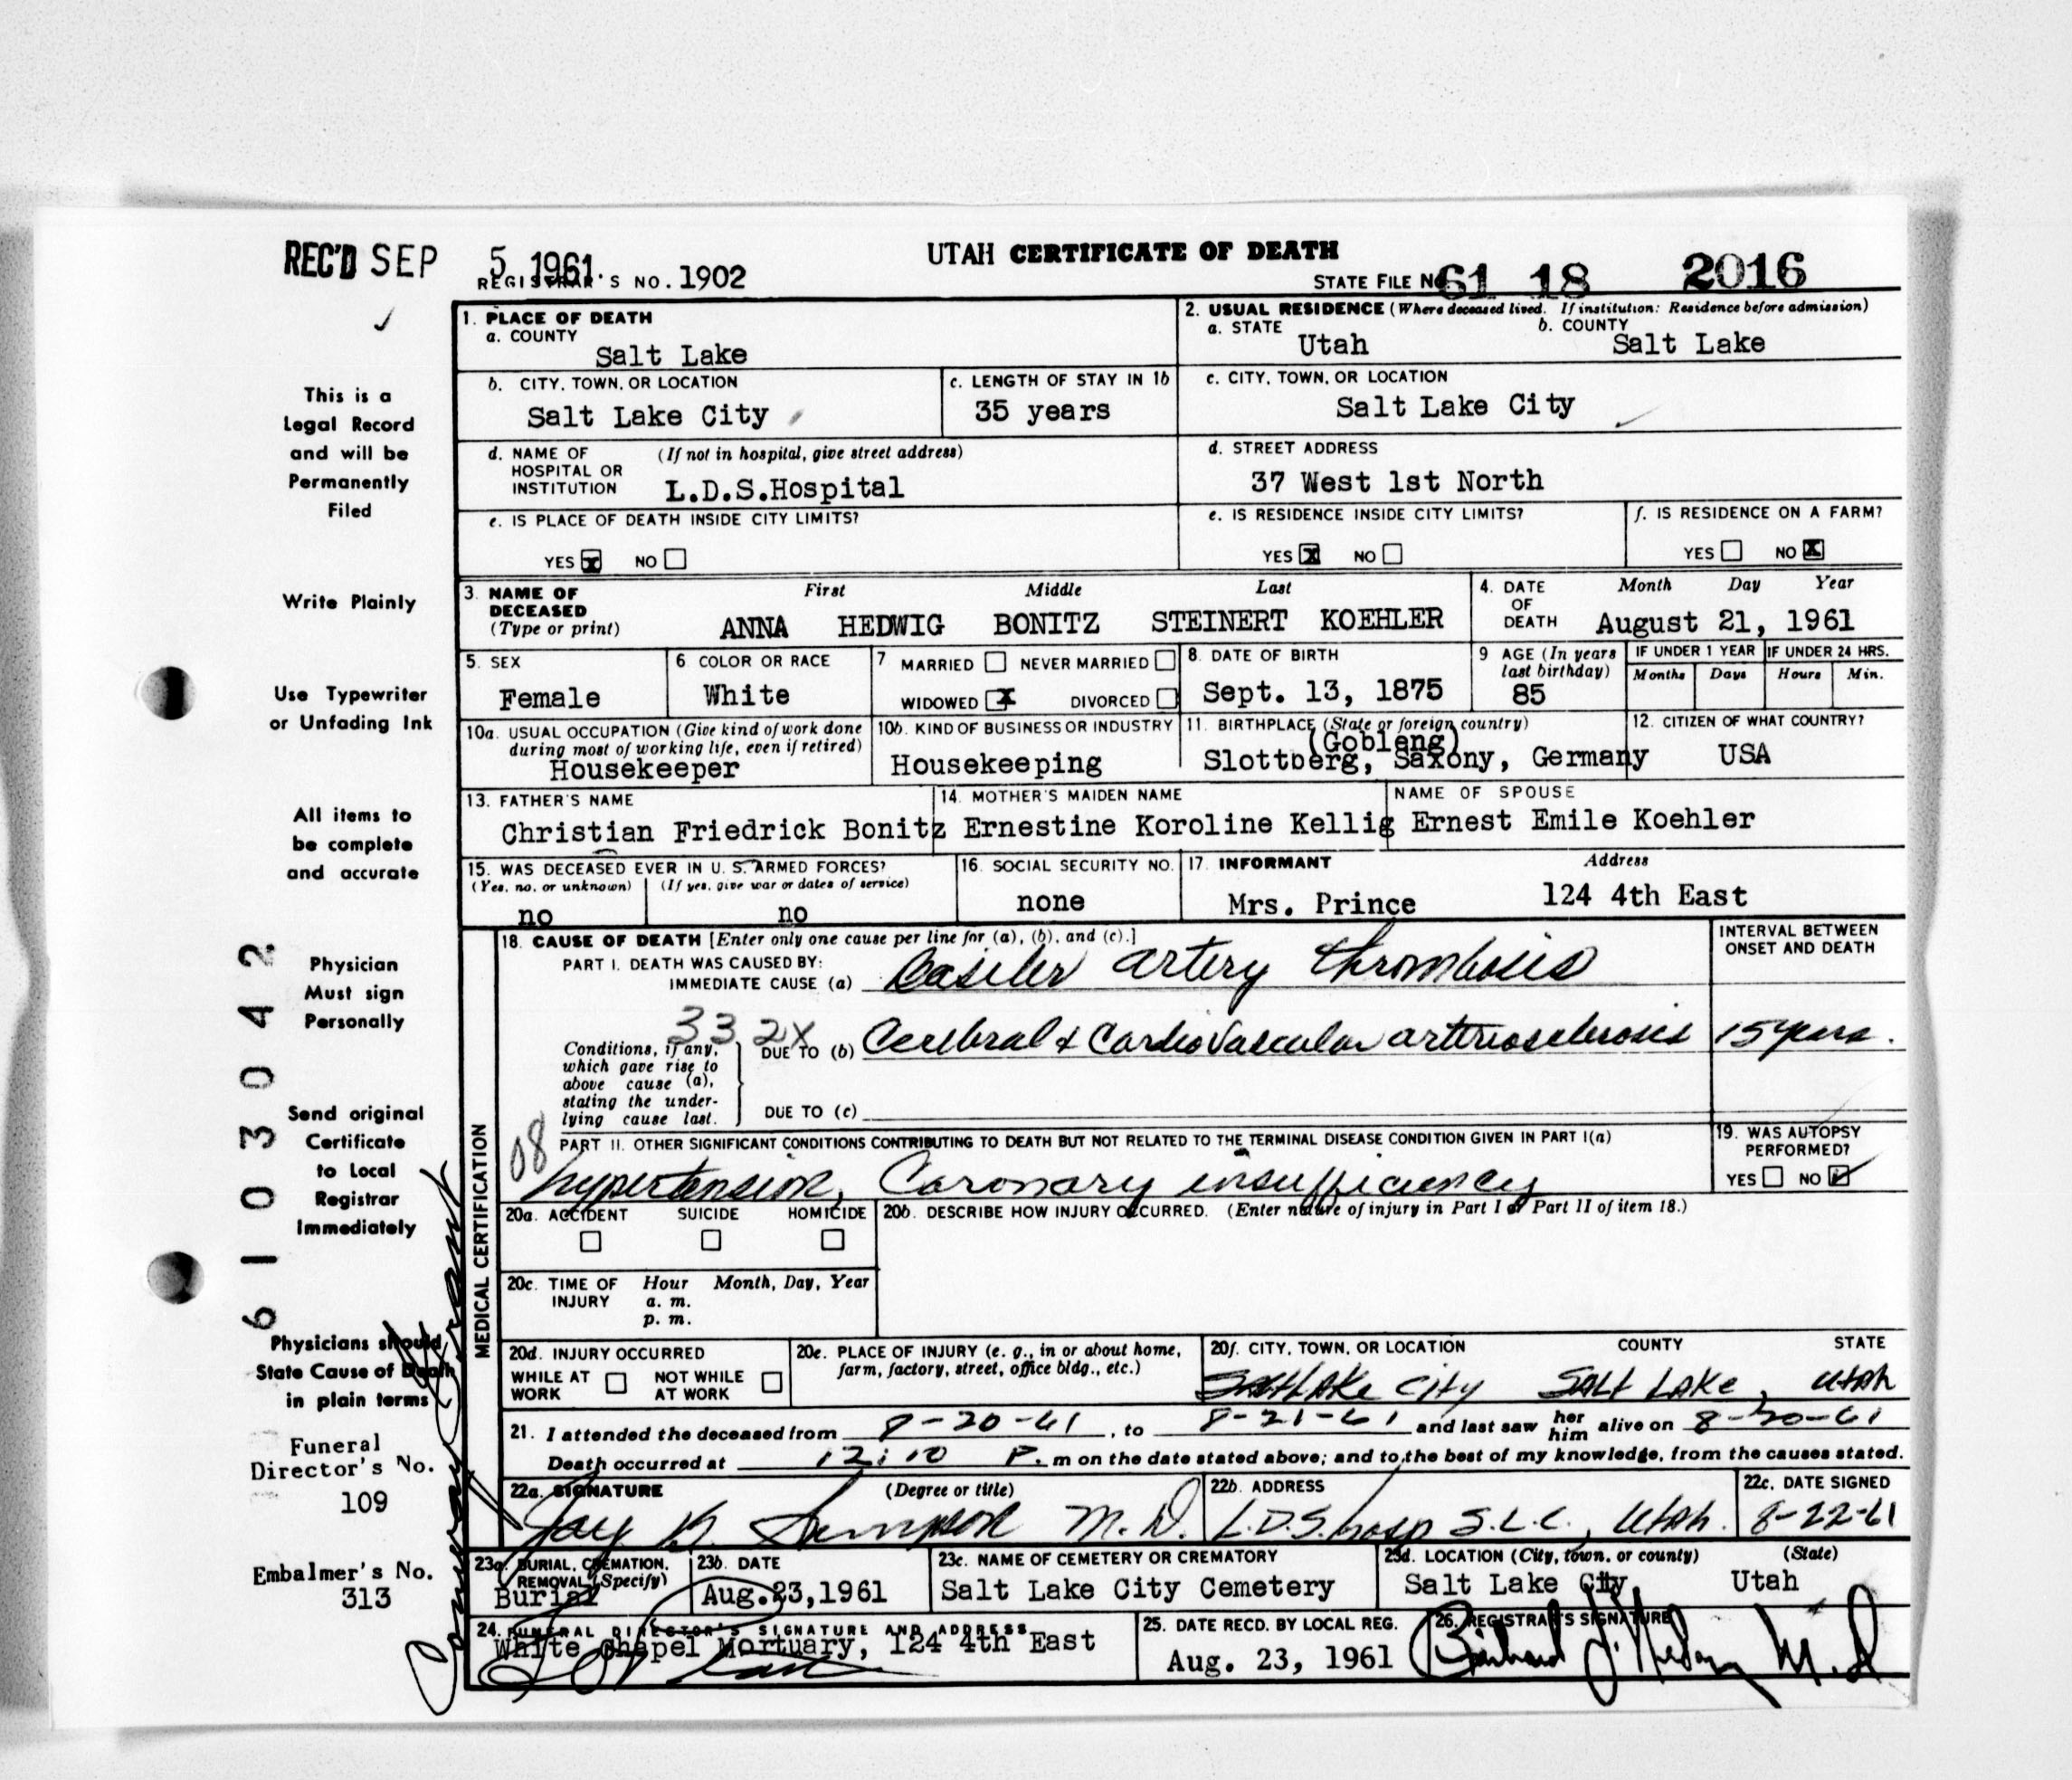 REC'D SEP 5 1961
UTAH CERTIFICATE OF DEATH
REGISTRAR'S NO. 1902
STATE FILE NO. 61 18 2016
This is a
Legal Record
and will be
Permanently
Filed
Write Plainly
Use Typewriter
or Unfading Ink
All items to
be complete
and accurate
Physician
Must sign
Personally
Send original
Certificate
to Local
Registrar
Immediately
Physicians should
State Cause of Death
in plain terms
Funeral
Director's No.
109
Embalmer's No.
313
61030042
1. PLACE OF DEATH
a. COUNTY
Salt Lake
2. USUAL RESIDENCE (Where deceased lived. If institution: Residence before admission)
a. STATE b. COUNTY
Utah Salt Lake
b. CITY, TOWN, OR LOCATION
Salt Lake City
c. LENGTH OF STAY IN 1b
35 years
c. CITY, TOWN, OR LOCATION
Salt Lake City
d. NAME OF (If not in hospital, give street address)
HOSPITAL OR
INSTITUTION L.D.S.Hospital
d. STREET ADDRESS
37 West 1st North
e. IS PLACE OF DEATH INSIDE CITY LIMITS?
YES X NO
e. IS RESIDENCE INSIDE CITY LIMITS?
YES X NO
f. IS RESIDENCE ON A FARM?
YES NO X
3. NAME OF First Middle Last
DECEASED
(Type or print) ANNA HEDWIG BONITZ STEINERT KOEHLER
4. DATE Month Day Year
OF
DEATH August 21, 1961
5. SEX
Female
6 COLOR OR RACE
White
7 MARRIED NEVER MARRIED
WIDOWED X DIVORCED
8. DATE OF BIRTH
Sept. 13, 1875
9 AGE (In years
last birthday)
85
IF UNDER 1 YEAR IF UNDER 24 HRS.
Months Days Hours Min.
10a. USUAL OCCUPATION (Give kind of work done
during most of working life, even if retired)
Housekeeper
10b. KIND OF BUSINESS OR INDUSTRY
Housekeeping
11. BIRTHPLACE (State or foreign country)
(Gobleng)
Slottberg, Saxony, Germany
12. CITIZEN OF WHAT COUNTRY?
USA
13. FATHER'S NAME
Christian Friedrick Bonitz
14. MOTHER'S MAIDEN NAME
Ernestine Koroline Kellig
NAME OF SPOUSE
Ernest Emile Koehler
15. WAS DECEASED EVER IN U. S. ARMED FORCES?
(Yes, no, or unknown) (If yes, give war or dates of service)
no no
16. SOCIAL SECURITY NO.
none
17. INFORMANT Address
Mrs. Prince 124 4th East
MEDICAL CERTIFICATION
18. CAUSE OF DEATH [Enter only one cause per line for (a), (b), and (c).]
PART I. DEATH WAS CAUSED BY:
IMMEDIATE CAUSE (a) Basiler artery thrombosis
INTERVAL BETWEEN
ONSET AND DEATH
332X
Conditions, if any,
which gave rise to
above cause (a),
stating the under-
lying cause last.
DUE TO (b) Cerebral & Cardiovascular arteriosclerosis 15 years.
DUE TO (c)
08
PART II. OTHER SIGNIFICANT CONDITIONS CONTRIBUTING TO DEATH BUT NOT RELATED TO THE TERMINAL DISEASE CONDITION GIVEN IN PART I(a)
hypertension, Coronary insufficiency
19. WAS AUTOPSY
PERFORMED?
YES NO ✓
20a. ACCIDENT SUICIDE HOMICIDE
20b. DESCRIBE HOW INJURY OCCURRED. (Enter nature of injury in Part I or Part II of item 18.)
20c. TIME OF Hour Month, Day, Year
INJURY a. m.
p. m.
20d. INJURY OCCURRED
WHILE AT NOT WHILE
WORK AT WORK
20e. PLACE OF INJURY (e. g., in or about home,
farm, factory, street, office bldg., etc.)
20f. CITY, TOWN, OR LOCATION COUNTY STATE
Salt Lake City Salt Lake, Utah
21. I attended the deceased from 8-20-61, to 8-21-61 and last saw her him alive on 8-20-61
Death occurred at 12:10 P. m on the date stated above; and to the best of my knowledge, from the causes stated.
22a. SIGNATURE (Degree or title)
Jay M.D.
22b. ADDRESS
L.D.S. hosp S.L.C., Utah.
22c. DATE SIGNED
8-22-61
23a. BURIAL, CREMATION,
REMOVAL (Specify)
Burial
23b. DATE
Aug.23,1961
23c. NAME OF CEMETERY OR CREMATORY
Salt Lake City Cemetery
23d. LOCATION (City, town, or county) (State)
Salt Lake City, Utah
24. FUNERAL DIRECTOR'S SIGNATURE AND ADDRESS
White Chapel Mortuary, 124 4th East
25. DATE RECD. BY LOCAL REG.
Aug. 23, 1961
26. REGISTRAR'S SIGNATURE
M.D